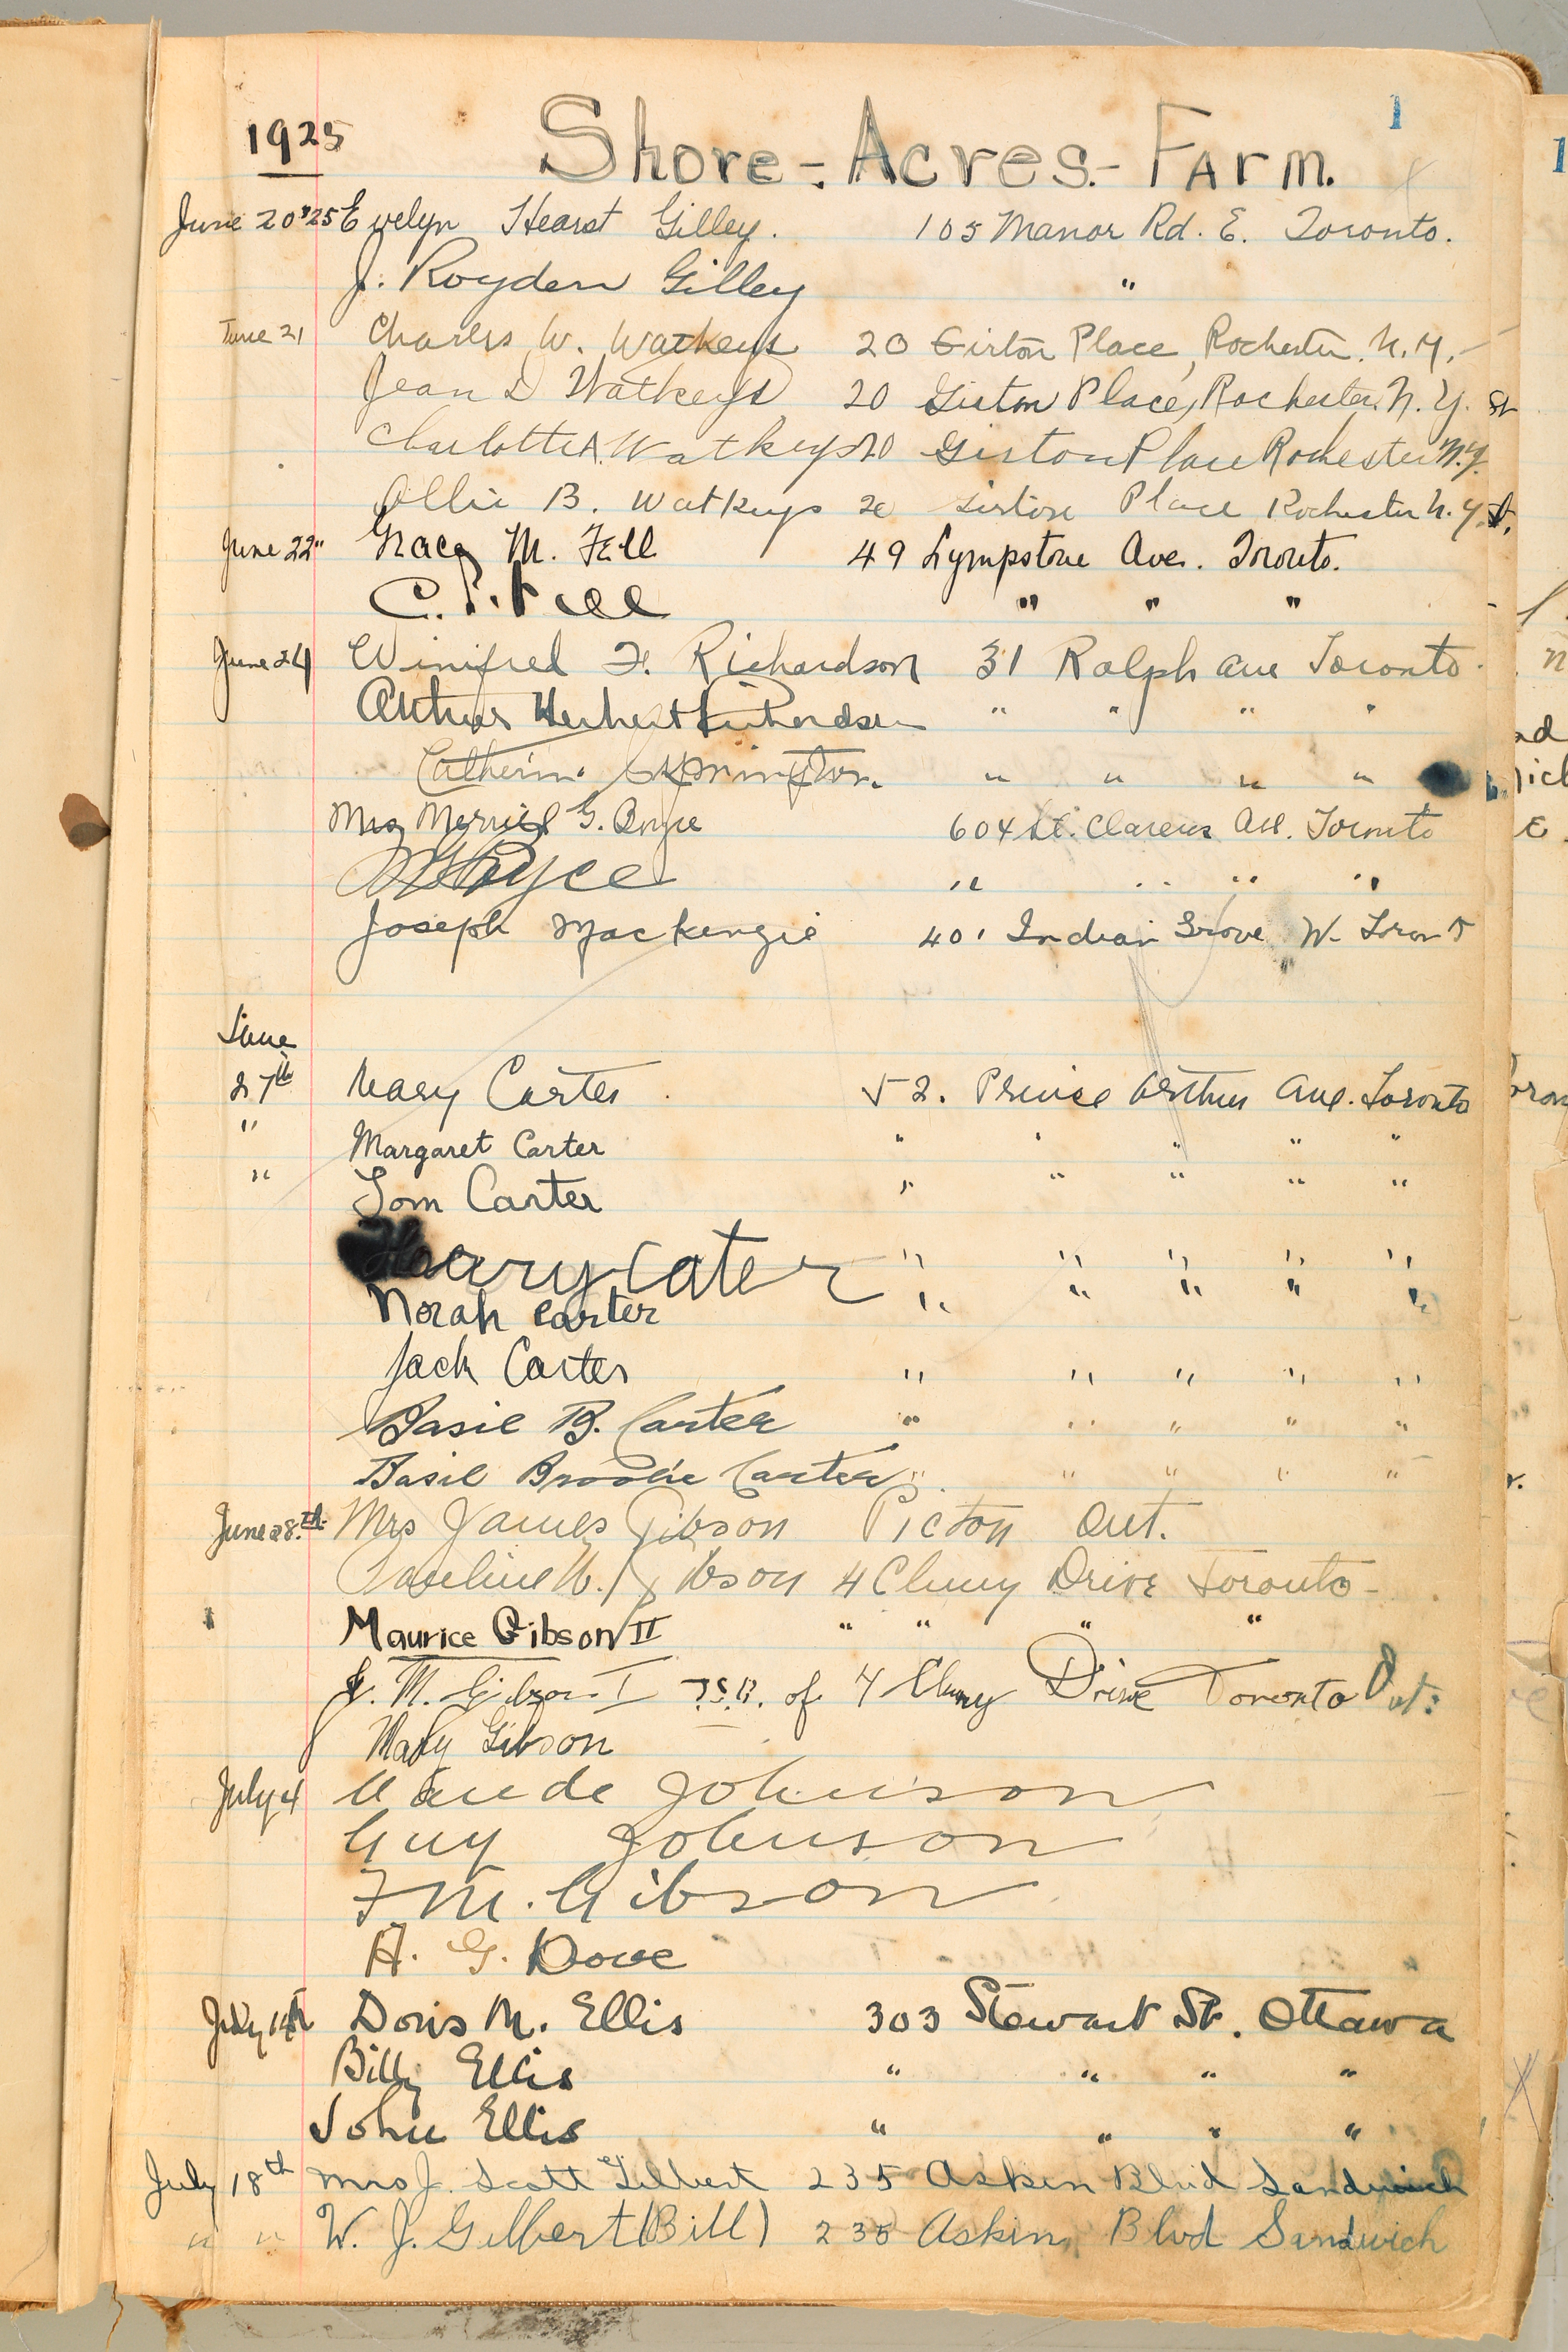 1
1925 Shore-Acres-Farm.
June 20 '25 Evelyn Hearst Gilley. 105 Manor Rd. E. Toronto.
J. Royden Gilley "
June 21 Charles W. Watkeys 20 Girton Place, Rochester. N.Y.
Jean D Watkeys 20 Girton Place, Rochester N.Y. St
Charlotte A. Watkeys 20 Girton Place Rochester N.Y.
Ollie B. Watkeys 20 Girton Place Rochester N.Y.
June 22" Gracy M. Fell 49 Lympstone Ave. Toronto.
C. Fell " " "
June 24 Winifred F. Richardson 31 Ralph Ave Toronto
Arthur Herbert Richardson " " " "
Catherine " " " "
Mrs Merrill G. Boyce 604 St. Clarens Ave. Toronto
Boyce " " " "
Joseph Mackenzie 401 Indian Grove W. Toront
June
27th Mary Carter 52. Prince Arthur Ave. Toronto
" Margaret Carter " " " " "
" Tom Carter " " " " "
Harry Cater " " " " "
Norah Carter " " " " "
Jack Carter " " " " "
Basil B. Carter " " " " "
Basil Brooke Carter " " " " "
June 28th. Mrs James Gibson Picton Ont.
Pauline W. Gibson 4 Cluny Drive Toronto-
Maurice Gibson II " " " "
J. M. Gibson I of 4 Cluny Drive Toronto Ont:
Mary Gibson
July 4 Maude Johnson
Guy Johnson
F M. Gibson
A. G. Dove
July 14th Doris M. Ellis 303 Stewart St. Ottawa
Billy Ellis " " " "
John Ellis " " " "
July 18th Mrs J. Scott Gilbert 235 Askin Blvd Sandwich
" " W. J. Gilbert (Bill) 235 Askin Blvd Sandwich